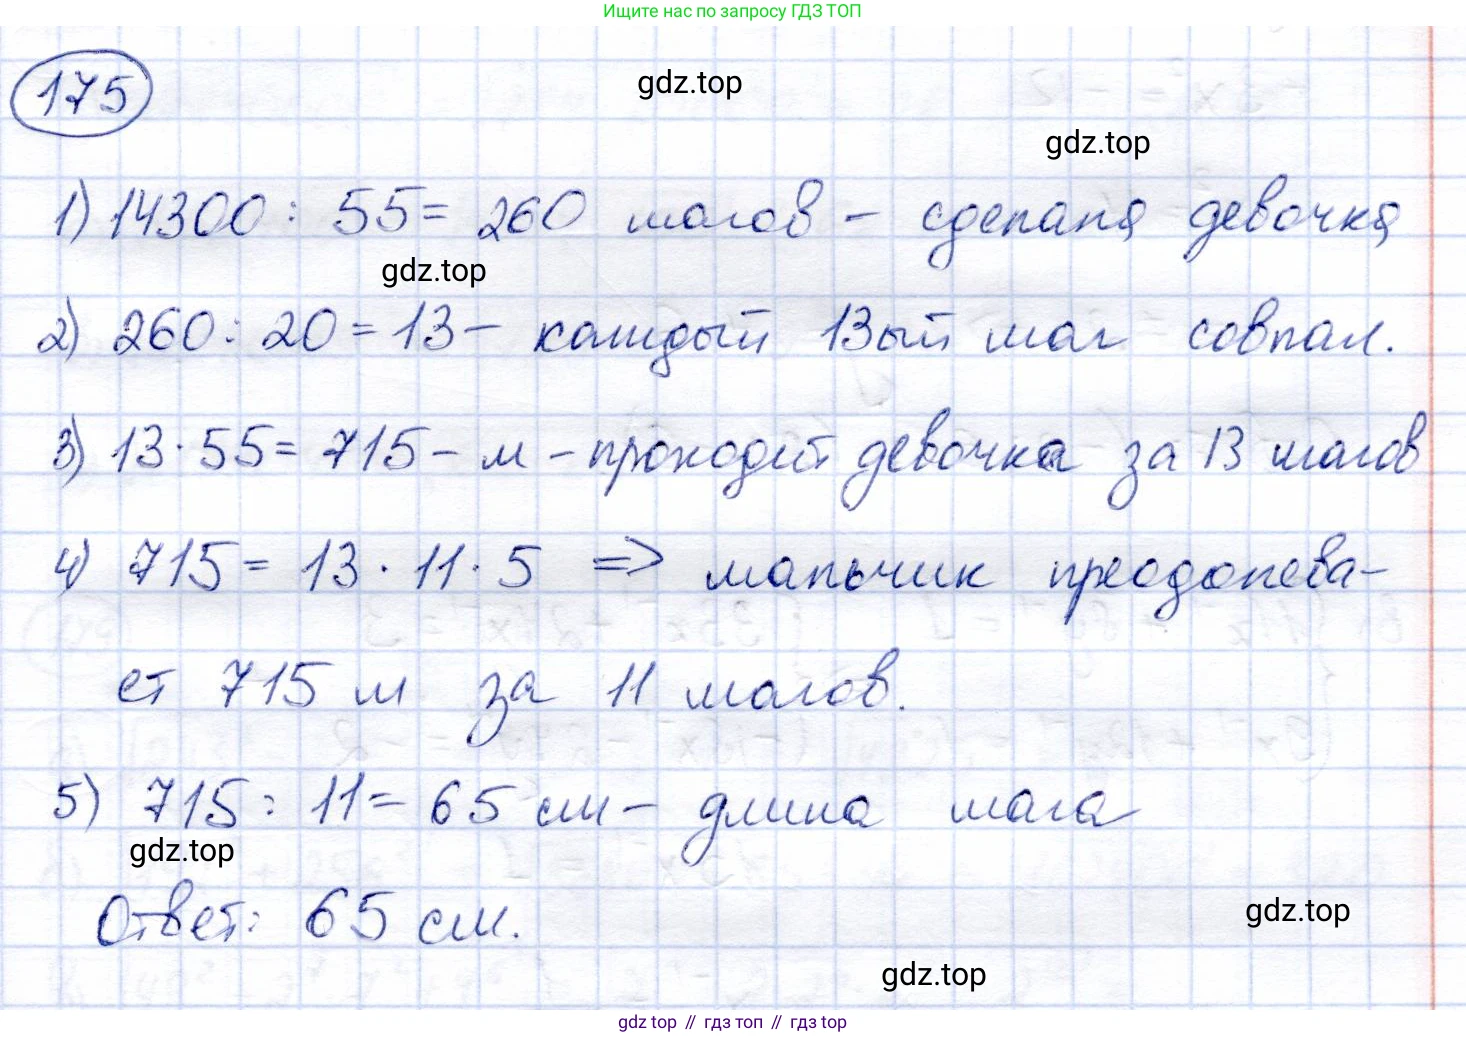 Ищите нас по запросу ГДЗ ТОП
175
gdz.top
gdz.top
1) 14300 : 55 = 260 шагов – сделала девочка
gdz.top
2) 260 : 20 = 13 – каждый 13ый шаг совпал.
3) 13 · 55 = 715 – м – проходит девочка за 13 шагов
4) 715 = 13 · 11 · 5 => мальчик преодолева-
ет 715 м за 11 шагов.
5) 715 : 11 = 65 см – длина шага
gdz.top
Ответ: 65 см.
gdz.top
gdz.top
gdz top // гдз топ // гдз top